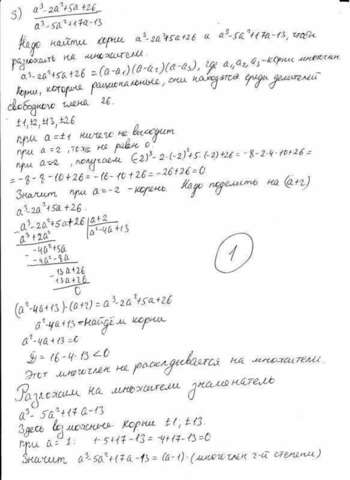 5) a³-2a²+5a+26
a³-5a²+17a-13
Надо найти корни a³-2a²+5a+26 и a³-5a²+17a-13, чтобы
разложить на множители.
a³-2a²+5a+26=(a-a₁)(a-a₂)(a-a₃), где a₁,a₂,a₃-корни многочлена
Корни, которые рациональные, они находятся среди делителей
свободного члена 26.
±1,±2,±13,±26
при a=±1 ничего не выходит
при a=2, тоже не равен 0
при a=-2, получаем (-2)³-2·(-2)²+5·(-2)+26=-8-2·4-10+26=
=-8-8-10+26=-16-10+26=-26+26=0
Значит при a=-2 -корень. Надо поделить на (a+2)
a³-2a²+5a+26.
-a³-2a²+5a+26 | a+2
a³+2a² a²-4a+13
-4a²+5a
-4a²-8a
13a+26
13a+26
0
1
(a²-4a+13)·(a+2)=a³-2a²+5a+26
a²-4a+13=Найдём корни
a²-4a+13=0
D=16-4·13<0
Этот многочлен не раскладывается на множители.
Разложим на множители знаменатель
a³-5a²+17a-13
Здесь возможные корни ±1, ±13.
при a=1: 1-5+17-13=-4+17-13=0
Значит a³-5a²+17a-13=(a-1)·(многочлен 2-й степени)